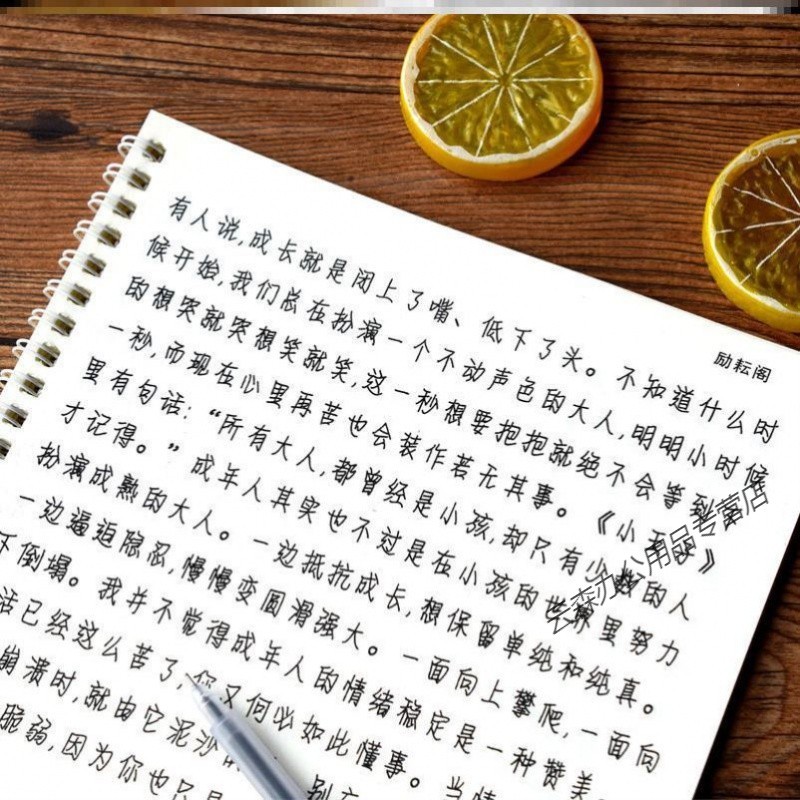 励耘阁
有人说,成长就是闭上了嘴、低下了头。不知道什么时
候开始,我们总在扮演一个不动声色的大人,明明小时候
的想哭就哭想笑就笑,这一秒想要抱抱就绝不会等到
一秒,而现在心里再苦也会装作若无其事。《小王子》
里有句话:“所有大人,都曾经是小孩,却只有少数的人
才记得。”成年人其实也不过是在小孩的世界里努力
扮演成熟的大人。一边抵抗成长,想保留单纯和纯真。
一边逼迫隐忍,慢慢变圆滑强大。一面向上攀爬,一面向
下倒塌。我并不觉得成年人的情绪稳定是一种赞美
活已经这么苦了,你又何必如此懂事。当情
崩溃时,就由它泥沙 别
脆弱,因为你也只
云森办公用品专营店